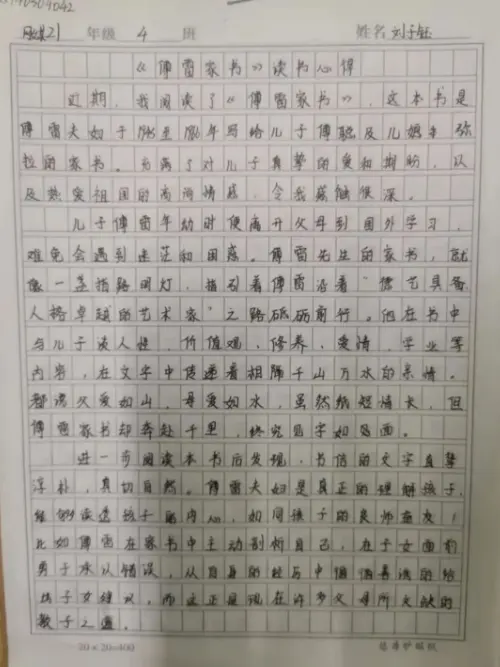 年级 4 班 姓名 刘子钰
《傅雷家书》读书心得
近期，我阅读了《傅雷家书》，这本书是
傅雷夫如于 至 年写给儿子傅聪及儿媳 弥
拉的家书。充满了对儿子真挚的爱和期盼，以
及热爱祖国的高尚情感，令我感触很深。
儿子傅雷年幼时便离开父母到国外学习，
难免会遇到迷茫和困惑。傅雷先生的家书，就
像一盏指路明灯，指引着傅雷沿着“德艺具备
人格卓越的艺术家”之路砥砺前行。他在书中
与儿子谈人性、价值观、修养、爱情、学业等
内容，在文字中传递着相隔千山万水的亲情。
都说父爱如山，母爱如水，虽然纸短情长，但
傅雷家书却奔赴千里，终究见字如见面。
进一步阅读本书后发现，书信的文字真挚
淳朴，真切自然。傅雷夫妇是真正的理解孩子，
能够读透孩子的内心，如同孩子的良师益友！
比如傅雷在家书中主动剖析自己，在子女面前
勇于承认错误，从自身的经历中循循善诱的给
孩子女建议，而这正是现在许多父母所欠缺的
教子之道。
20×20=400